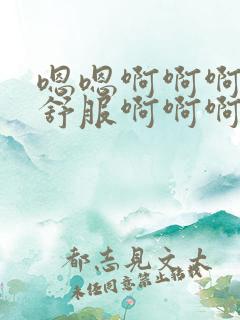 嗯嗯啊啊啊
舒服啊啊啊
都志見文太
未经同意禁止转载